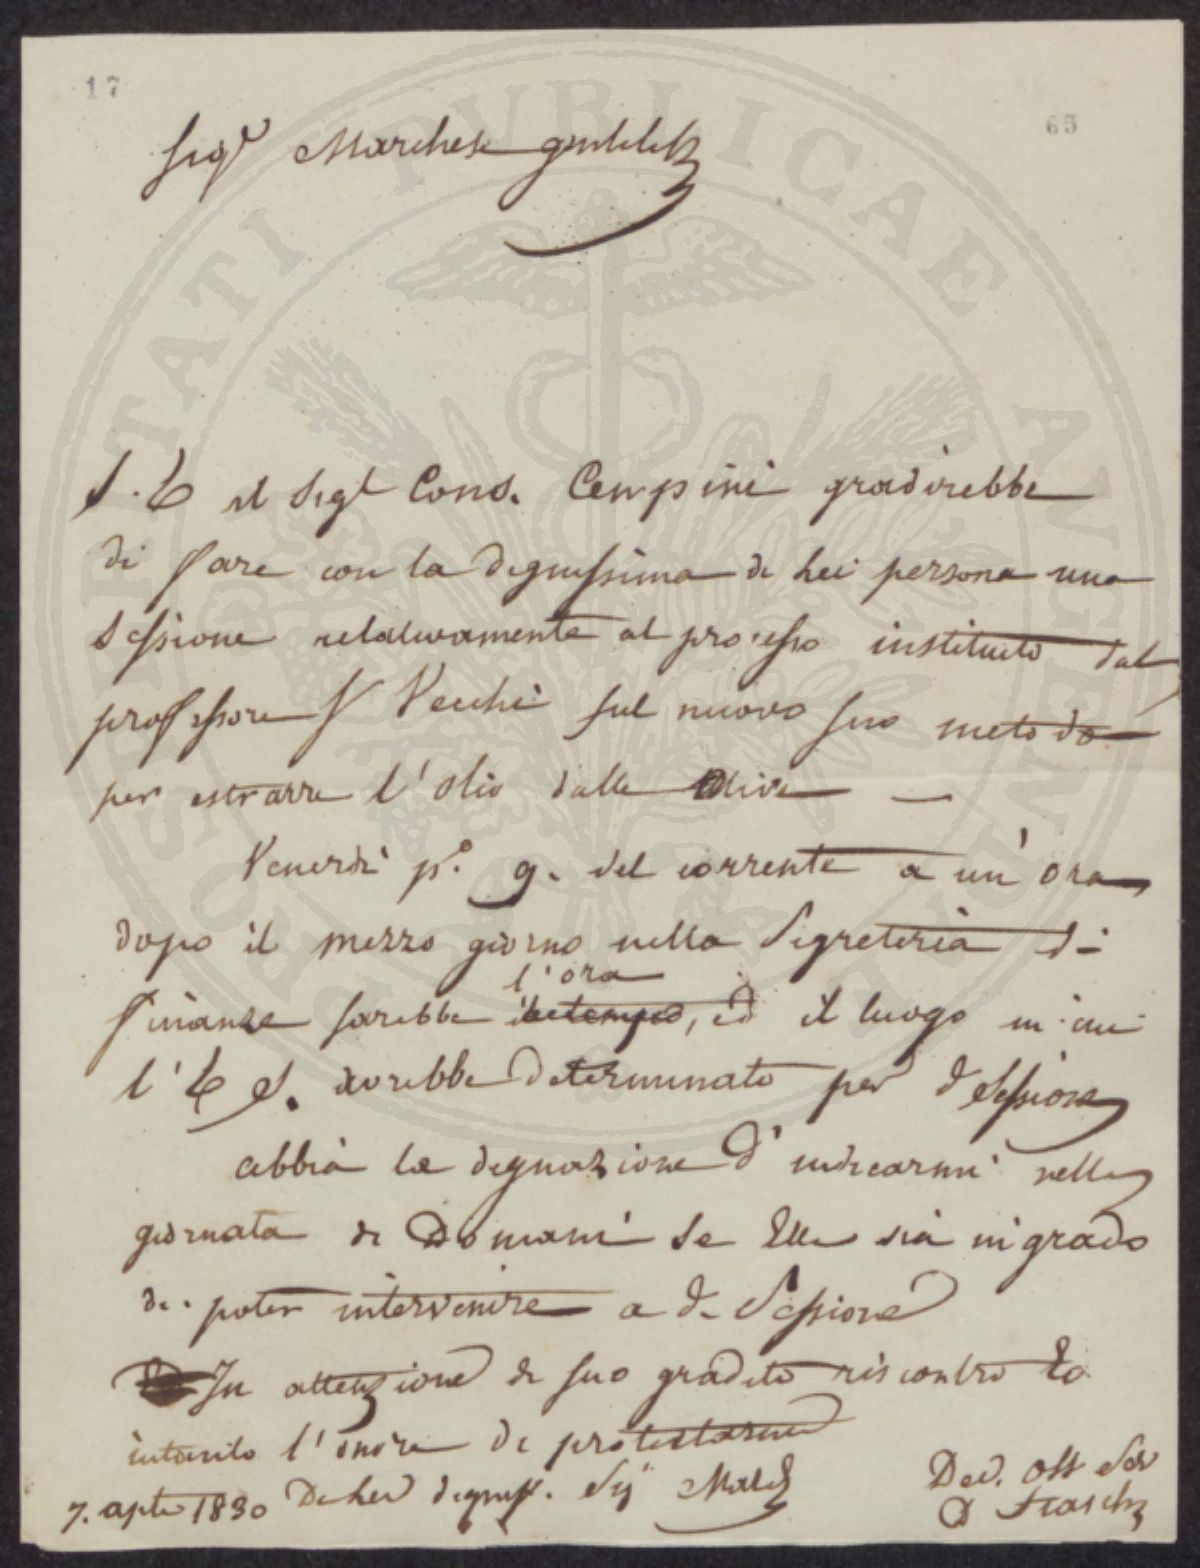 17
65
Sig.r Marchese gentiliss.
S. E. il Sig.r Cons. Cempini gradirebbe
di fare con la degnissima di Lei persona una
sessione relativamente al processo instituito dal
professore Vecchi sul nuovo suo metodo
per estrarre l'olio dalle olive —
Venerdì p.o 9. del corrente a un'ora
dopo il mezzo giorno nella Segreteria di
l'ora
Finanze sarebbe il tempo, ed il luogo in cui
l'E. S. avrebbe determinato per d.a sessione
abbia la degnazione d'indicarmi nella
giornata di Domani se Ella sia in grado
di poter intervenire a d.a Sessione
In attenzione di suo gradito riscontro ho
intanto l'onore di protestarmi
Di Lei degniss. Sig. March.
Dev. Obb. Ser
7. aprile 1830